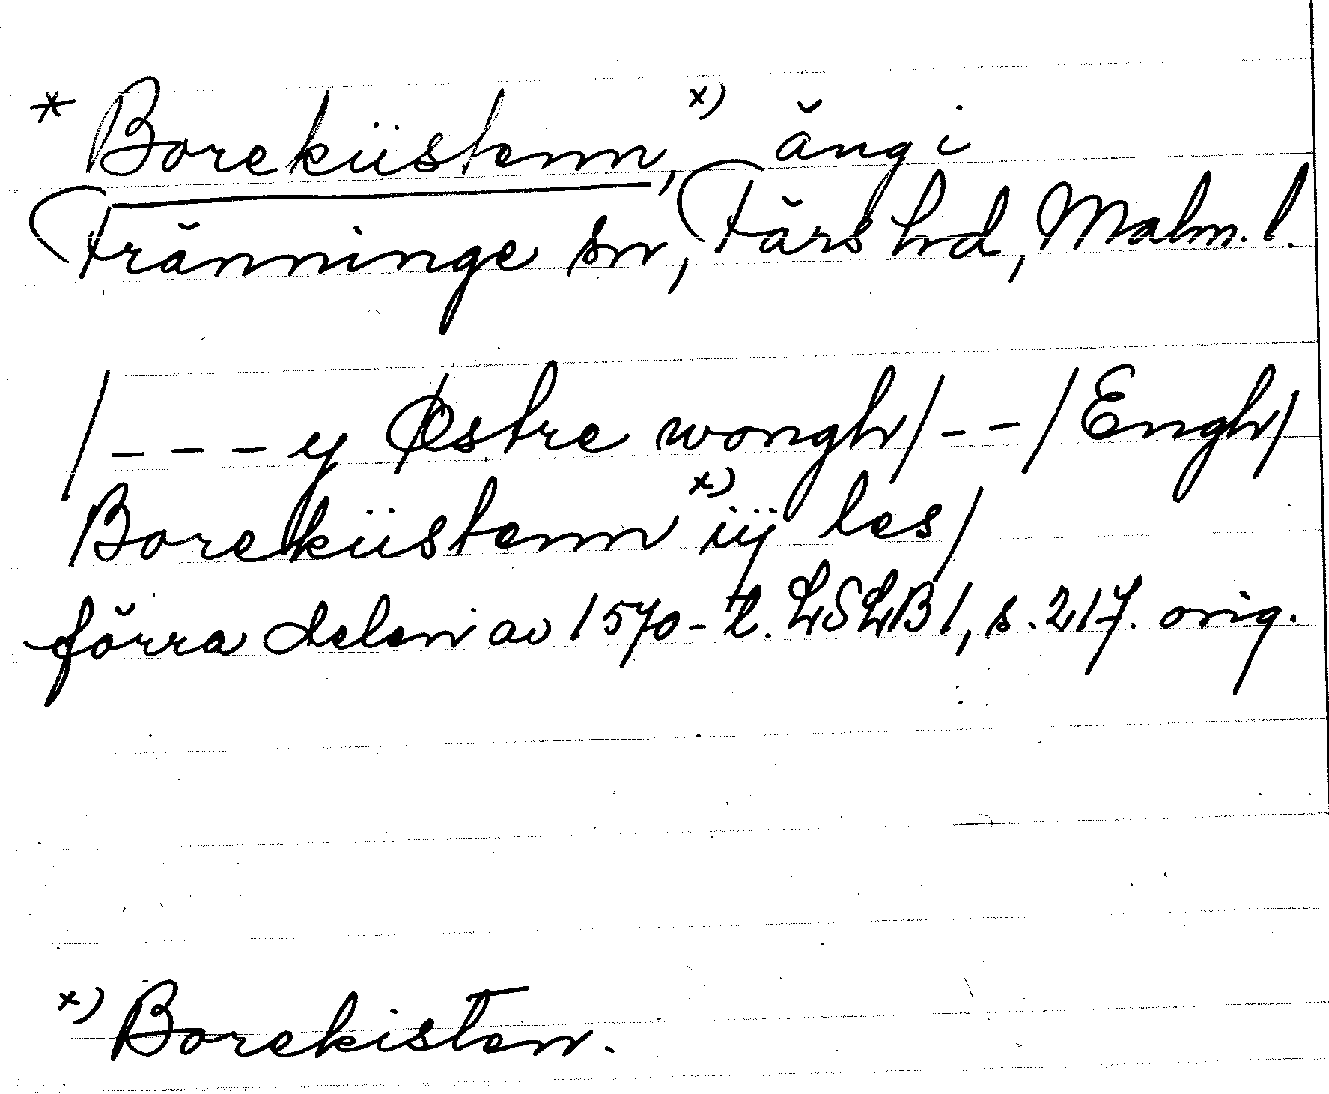 * Boreküstenn,ˣ⁾ äng i
Tränninge sn, Färs hd, Malm. l.
/ - - - y Østre wongh / - - / Engh /
Boreküstennˣ⁾ iij les /
förra delen av 1570-t. LSLB 1, s. 217. orig.
ˣ⁾ Borekisten.